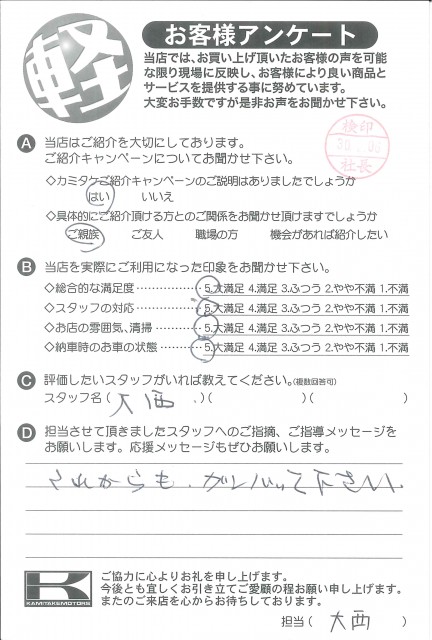 軽
お客様アンケート
当店では、お買い上げ頂いたお客様の声を可能
な限り現場に反映し、お客様により良い商品と
サービスを提供する事に努めています。
大変お手数ですが是非お声をお聞かせ下さい。
検印
社長
A 当店はご紹介を大切にしております。
ご紹介キャンペーンについてお聞かせ下さい。
◇カミタケご紹介キャンペーンのご説明はありましたでしょうか
はい いいえ
◇具体的にご紹介頂ける方とのご関係をお聞かせ頂けますでしょうか
ご親族 ご友人 職場の方 機会があれば紹介したい
B 当店を実際にご利用になった印象をお聞かせ下さい。
◇総合的な満足度 5.大満足 4.満足 3.ふつう 2.やや不満 1.不満
◇スタッフの対応 5.大満足 4.満足 3.ふつう 2.やや不満 1.不満
◇お店の雰囲気、清掃 5.大満足 4.満足 3.ふつう 2.やや不満 1.不満
◇納車時のお車の状態 5.大満足 4.満足 3.ふつう 2.やや不満 1.不満
C 評価したいスタッフがいれば教えてください。(複数回答可)
スタッフ名 ( 大西 ) ( ) ( )
D 担当させて頂きましたスタッフへのご指摘、ご指導メッセージを
お願いします。応援メッセージもぜひお願いします。
これからも、ガンバッて下さい。
K
KAMITAKEMOTORS
ご協力に心よりお礼を申し上げます。
今後とも宜しくお引き立てご愛顧の程お願い申し上げます。
またのご来店を心からお待ちしております。
担当 ( 大西 )